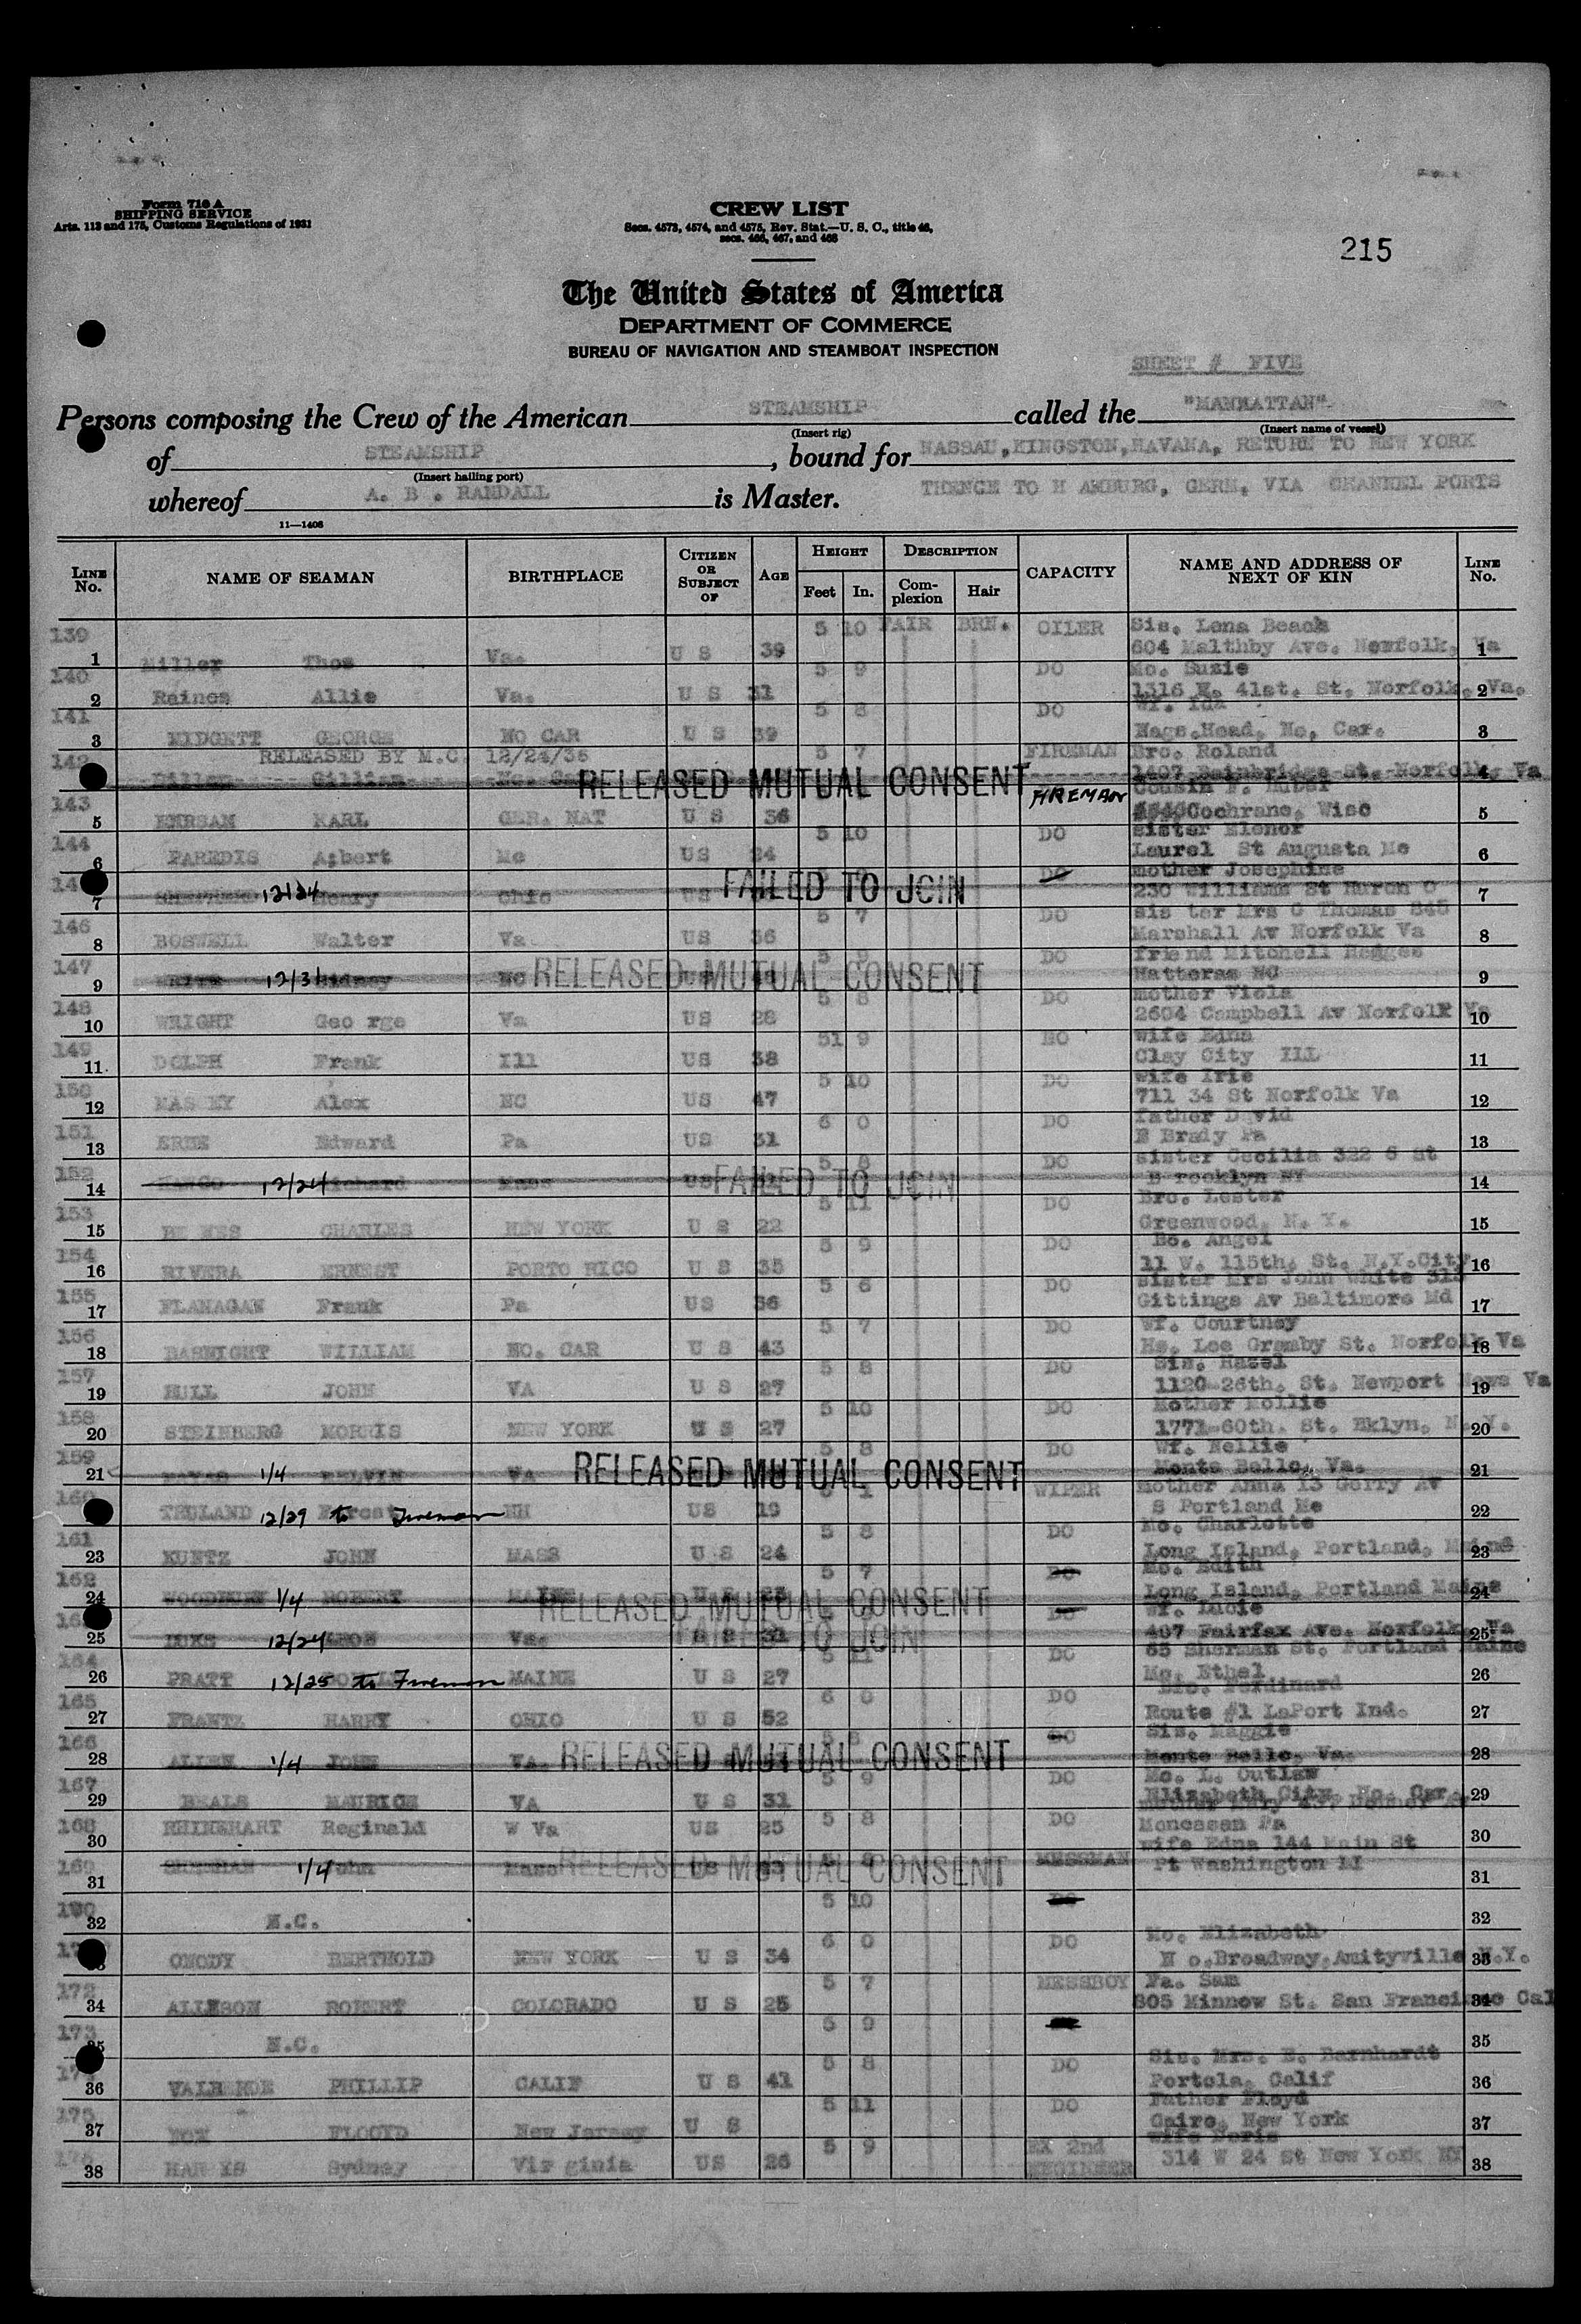 Form 710 A
SHIPPING SERVICE
Arts. 113 and 175, Customs Regulations of 1931
CREW LIST
Secs. 4573, 4574, and 4575, Rev. Stat.—U. S. C., title 46,
secs. 466, 467, and 468
215
The United States of America
DEPARTMENT OF COMMERCE
BUREAU OF NAVIGATION AND STEAMBOAT INSPECTION
SHEET # FIVE
Persons composing the Crew of the American STEAMSHIP called the "MANHATTAN"
(Insert rig) (Insert name of vessel)
of STEAMSHIP, bound for NASSAU, KINGSTON, HAVANA, RETURN TO NEW YORK
(Insert hailing port)
whereof A. B. RANDALL is Master. THENCE TO H AMBURG, GERM, VIA CHANNEL PORTS
11—1406
LINE No. NAME OF SEAMAN BIRTHPLACE CITIZEN OR SUBJECT OF AGE HEIGHT Feet In. DESCRIPTION Complexion Hair CAPACITY NAME AND ADDRESS OF NEXT OF KIN LINE No.
139 5 10 FAIR BRN. OILER Sis. Lena Beach
1 Miller Thos Va. U S 39 604 Malthby Ave. Norfolk, Va 1
140 5 9 DO Mo. Suzie
2 Raines Allie Va. U S 31 1316 E. 41st. St. Norfolk, Va. 2
141 5 8 DO Wf. Ida
3 MIDGETT GEORGE NO CAR U S 39 Nags Head, No, Car. 3
142 RELEASED BY M.C. 12/24/35 5 7 FIREMAN Bro. Roland
Dillon Gilliam No. Car RELEASED MUTUAL CONSENT 1407 Bainbridge St. Norfolk, Va 4
143 FIREMAN Cousin F. Huber
5 KARL GER. NAT U S 36 Cochrane, Wisc 5
144 5 10 DO sister Elenor
6 PAREDIS A;bert Me US 24 Laurel St Augusta Me 6
DO mother Josephine
7 12/24 Henry Ohio US FAILED TO JOIN 230 Williams St Huron O 7
146 5 7 DO sis ter Mrs C Thomas 845
8 BOSWELL Walter Va US 36 Marshall Av Norfolk Va 8
147 5 9 DO friend Mitchell Hedges
9 12/31 Sidney NC RELEASED MUTUAL CONSENT Hatteras NC 9
148 5 8 DO mother Viola
10 WRIGHT Geo rge Va US 28 2604 Campbell Av Norfolk Va 10
149 51 9 DO wife Edna
11 DOLPH Frank Ill US 38 Clay City Ill 11
150 5 10 DO wife Irie
12 Alex NC US 47 711 34 St Norfolk Va 12
151 6 0 DO father David
13 Edward Pa US 31 E Brady Pa 13
152 5 8 DO sister Cecilia 322 6 St
14 12/24 Richard Mass US FAILED TO JOIN B rooklyn NY 14
153 5 11 DO Bro. Lester
15 CHARLES NEW YORK U S 22 Greenwood, N. Y. 15
154 5 9 DO Angel
16 RIVERA ERNEST PORTO RICO U S 35 11 W. 115th. St. N.Y.City 16
155 5 6 DO sister Mrs John White 313
17 FLANAGAN Frank Pa US 36 Gittings Av Baltimore Md 17
156 5 7 DO Wf. Courtney
18 BASNIGHT WILLIAM NO. CAR U S 43 Ho. Lee Gramby St. Norfolk Va 18
157 5 8 DO Sis. Hazel
19 HULL JOHN VA U S 27 1120-26th. St. Newport News Va 19
158 5 10 DO Mother Mollie
20 STEINBERG MORRIS NEW YORK U S 27 1771-60th. St. Bklyn. N. Y. 20
159 5 8 DO Wf. Nellie
21 1/4 MELVIN VA RELEASED MUTUAL CONSENT Monte Bello, Va. 21
160 1 WIPER mother Anna 13 Gerry Av
TRULAND 12/29 Forest to Fireman NH US 19 S Portland Me 22
161 5 8 DO Mo. Charlotte
23 KUNTZ JOHN MASS U S 24 Long Island, Portland, Maine 23
162 5 7 DO Mo. Edith
24 WOODBURY 1/4 ROBERT MAINE U S 23 RELEASED MUTUAL CONSENT Long Island, Portland Maine 24
DO Wf. Lucie
25 12/24 LEON Va. U S FAILED TO JOIN 407 Fairfax Ave. Norfolk, Va 25
164 5 11 DO 65 Sherman St. Portland Maine
26 PRATT 12/25 to Fireman MAINE U S 27 Mo. Ethel 26
165 6 0 DO Ferdinard
27 FRANTZ HARRY OHIO U S 52 Route #1 LaPort Ind. 27
166 5 8 DO Sis. Maggie
28 ALLEN 1/4 JOHN VA. RELEASED MUTUAL CONSENT Monte Bello, Va. 28
167 5 9 DO Mo. L. Outlaw
29 BEALS MAURICE VA U S 31 Elizabeth City, No. Car. 29
168 5 8 DO
30 RHINEHART Reginald W Va US 25 Monessen Pa 30
169 MESSMAN wife Edna 144 Main St
31 1/4 John Mass US RELEASED MUTUAL CONSENT Pt Washington LI 31
5 10 DO
32 N.C. 32
6 0 DO Mo. Elizabeth
ONODY BERTHOLD NEW YORK U S 34 N o.Broadway,Amityville N.Y. 33
172 5 7 MESSBOY Fa. Sam
34 ALLESON ROBERT COLORADO U S 25 805 Minnow St. San Francisco Cal 34
173 5 9
35 N.C. 35
5 8 DO Sis. Mrs. E. Barnhardt
36 PHILLIP CALIF U S 41 Portola, Calif 36
175 5 11 DO Father Floyd
37 FLOOYD New Jersey U S Cairo, New York 37
5 9 EX 2nd wife Doris
38 Sydney Vir ginia US 26 ENGINEER 314 W 24 St New York NY 38